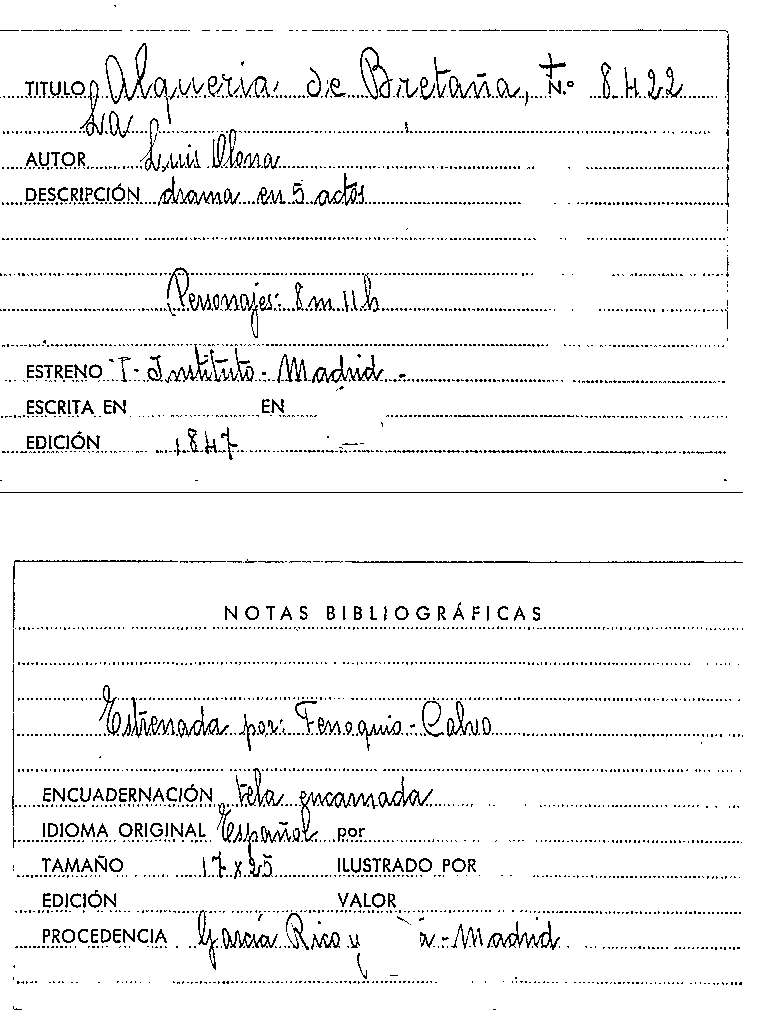 TITULO Alqueria de Bretaña, N.º 8422
La
AUTOR Luis Olona
DESCRIPCIÓN drama en 5 actos
Personajes: 8 m 11 h
ESTRENO T- Instituto - Madrid -
ESCRITA EN EN
EDICIÓN 1847
NOTAS BIBLIOGRÁFICAS
Estrenada por: Fenoquio - Calvo
ENCUADERNACIÓN tela encarnada
IDIOMA ORIGINAL Español por
TAMAÑO 17 x 25 ILUSTRADO POR
EDICIÓN VALOR
PROCEDENCIA García Rico y - Madrid